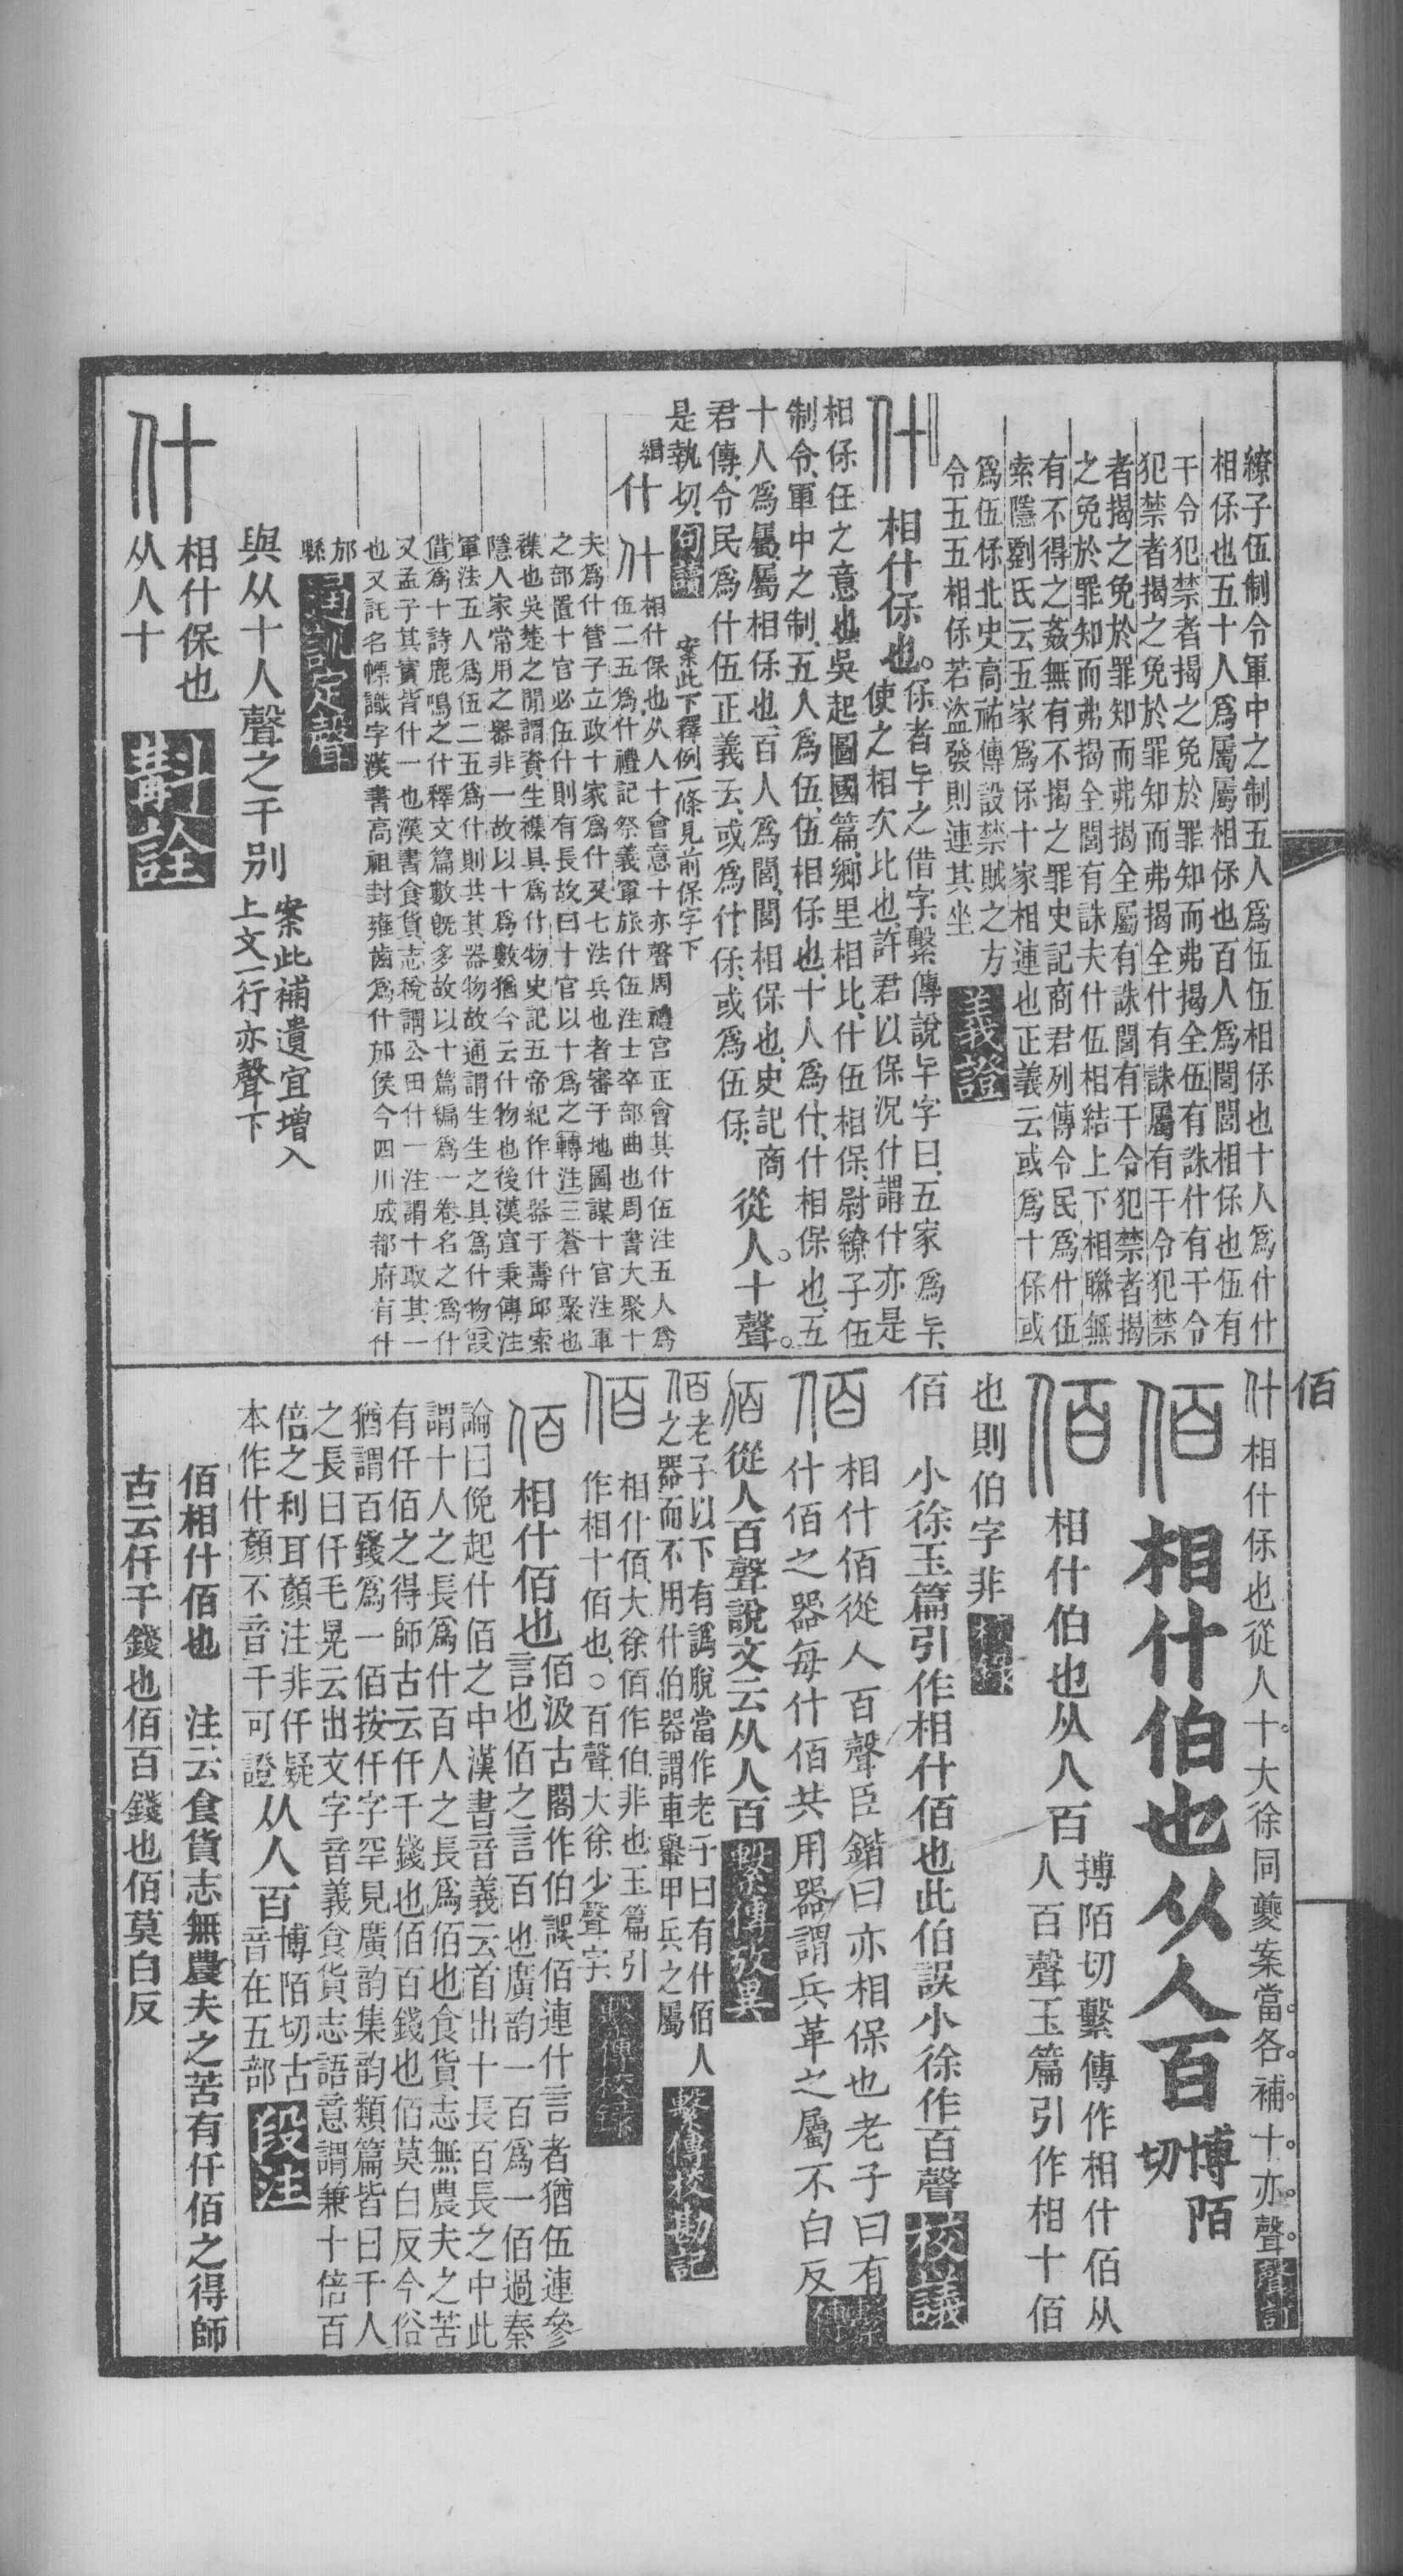 繚子伍制令軍中之制五人爲伍伍相保也十人爲什什
相保也五十人爲屬屬相保也百人爲閭閭相保也伍有
干令犯禁者揭之免於罪知而弗揭全伍有誅什有干令
犯禁者揭之免於罪知而弗揭全什有誅屬有干令犯禁
者揭之免於罪知而弗揭全屬有誅閭有干令犯禁者揭
之免於罪知而弗揭全閭有誅夫什伍相結上下相聯無
有不得之姦無有不揭之罪史記商君列傳令民爲什伍
索隱劉氏云五家爲保十家相連也正義云或爲十保或
爲伍保北史高祐傳設禁賊之方
令五五相保若盜發則連其坐
義證
什
相什保也。
保者𠤏之借字、繫傳說𠤏字曰、五家爲𠤏、
使之相次比也、許君以保況什、謂什亦是
相保任之意也、吳起圖國篇、鄉里相比、什伍相保、尉繚子伍
制令、軍中之制、五人爲伍、伍相保也、十人爲什、什相保也、五
十人爲屬、屬相保也、百人爲閭、閭相保也、史記商
君傳、令民爲什伍、正義云、或爲什保、或爲伍保、
從人。十聲。
是執切、
句讀
案此下釋例一條見前保字下
緝
什
什
相什保也从人十會意十亦聲周禮宮正會其什伍注五人爲
伍二五爲什禮記祭義軍旅什伍注士卒部曲也周書大聚十
夫爲什管子立政十家爲什又七法兵也者審于地圖謀十官注軍
之部置十官必伍什則有長故曰十官以十爲之轉注三蒼什聚也
襍也吳楚之間謂資生襍具爲什物史記五帝紀作什器于壽邱索
隱人家常用之器非一故以十爲數猶今云什物也後漢宣秉傳注
軍法五人爲伍二五爲什則共其器物故通謂生生之具爲什物假
借爲十詩鹿鳴之什釋文篇數旣多故以十篇編爲一卷名之爲什
又孟子其實皆什一也漢書食貨志稅謂公田什一注謂十取其一
也又託名幖識字漢書高祖封雍齒爲什邡侯今四川成都府有什
邡
縣
通訓定聲
與从十人聲之千别
案此補遺宜增入
上文一行亦聲下
什
相什保也
从人十
斠詮
佰
什相什保也從人十。大徐同夔案當各補十亦聲。
聲訂
佰
相什伯也从人百
博陌
切
佰
相什伯也从人百
搏陌切繫傳作相什佰从
人百聲玉篇引作相十佰
也則伯字非
佰
小徐玉篇引作相什佰也此伯誤小徐作百聲
校議
佰
相什佰從人百聲臣鍇曰亦相保也老子曰有
什佰之器每什佰共用器謂兵革之屬不白反
佰
從人百聲說文云从人百
繫傳攷異
佰
老子以下有譌脫當作老子曰有什佰人
之器而不用什伯器謂車轝甲兵之屬
繫傳校勘記
佰
相什佰、大徐佰作伯、非也、玉篇引
作相十佰也。○百聲、大徐少聲字、
繫傳校錄
佰
相什佰也
佰汲古閣作伯誤佰連什言者猶伍連參
言也佰之言百也廣韵一百爲一佰過秦
論曰俛起什佰之中漢書音義云首出十長百長之中此
謂十人之長爲什百人之長爲佰也食貨志無農夫之苦
有仟佰之得師古云仟千錢也佰百錢也佰莫白反今俗
猶謂百錢爲一佰按仟字罕見廣韵集韵類篇皆曰千人
之長曰仟毛晃云出文字音義食貨志語意謂兼十倍百
倍之利耳顏注非仟疑
本作什顏不音千可證
从人百
博陌切古
音在五部
段注
佰相什佰也　注云食貨志無農夫之苦有仟佰之得師
古云仟千錢也佰百錢也佰莫白反